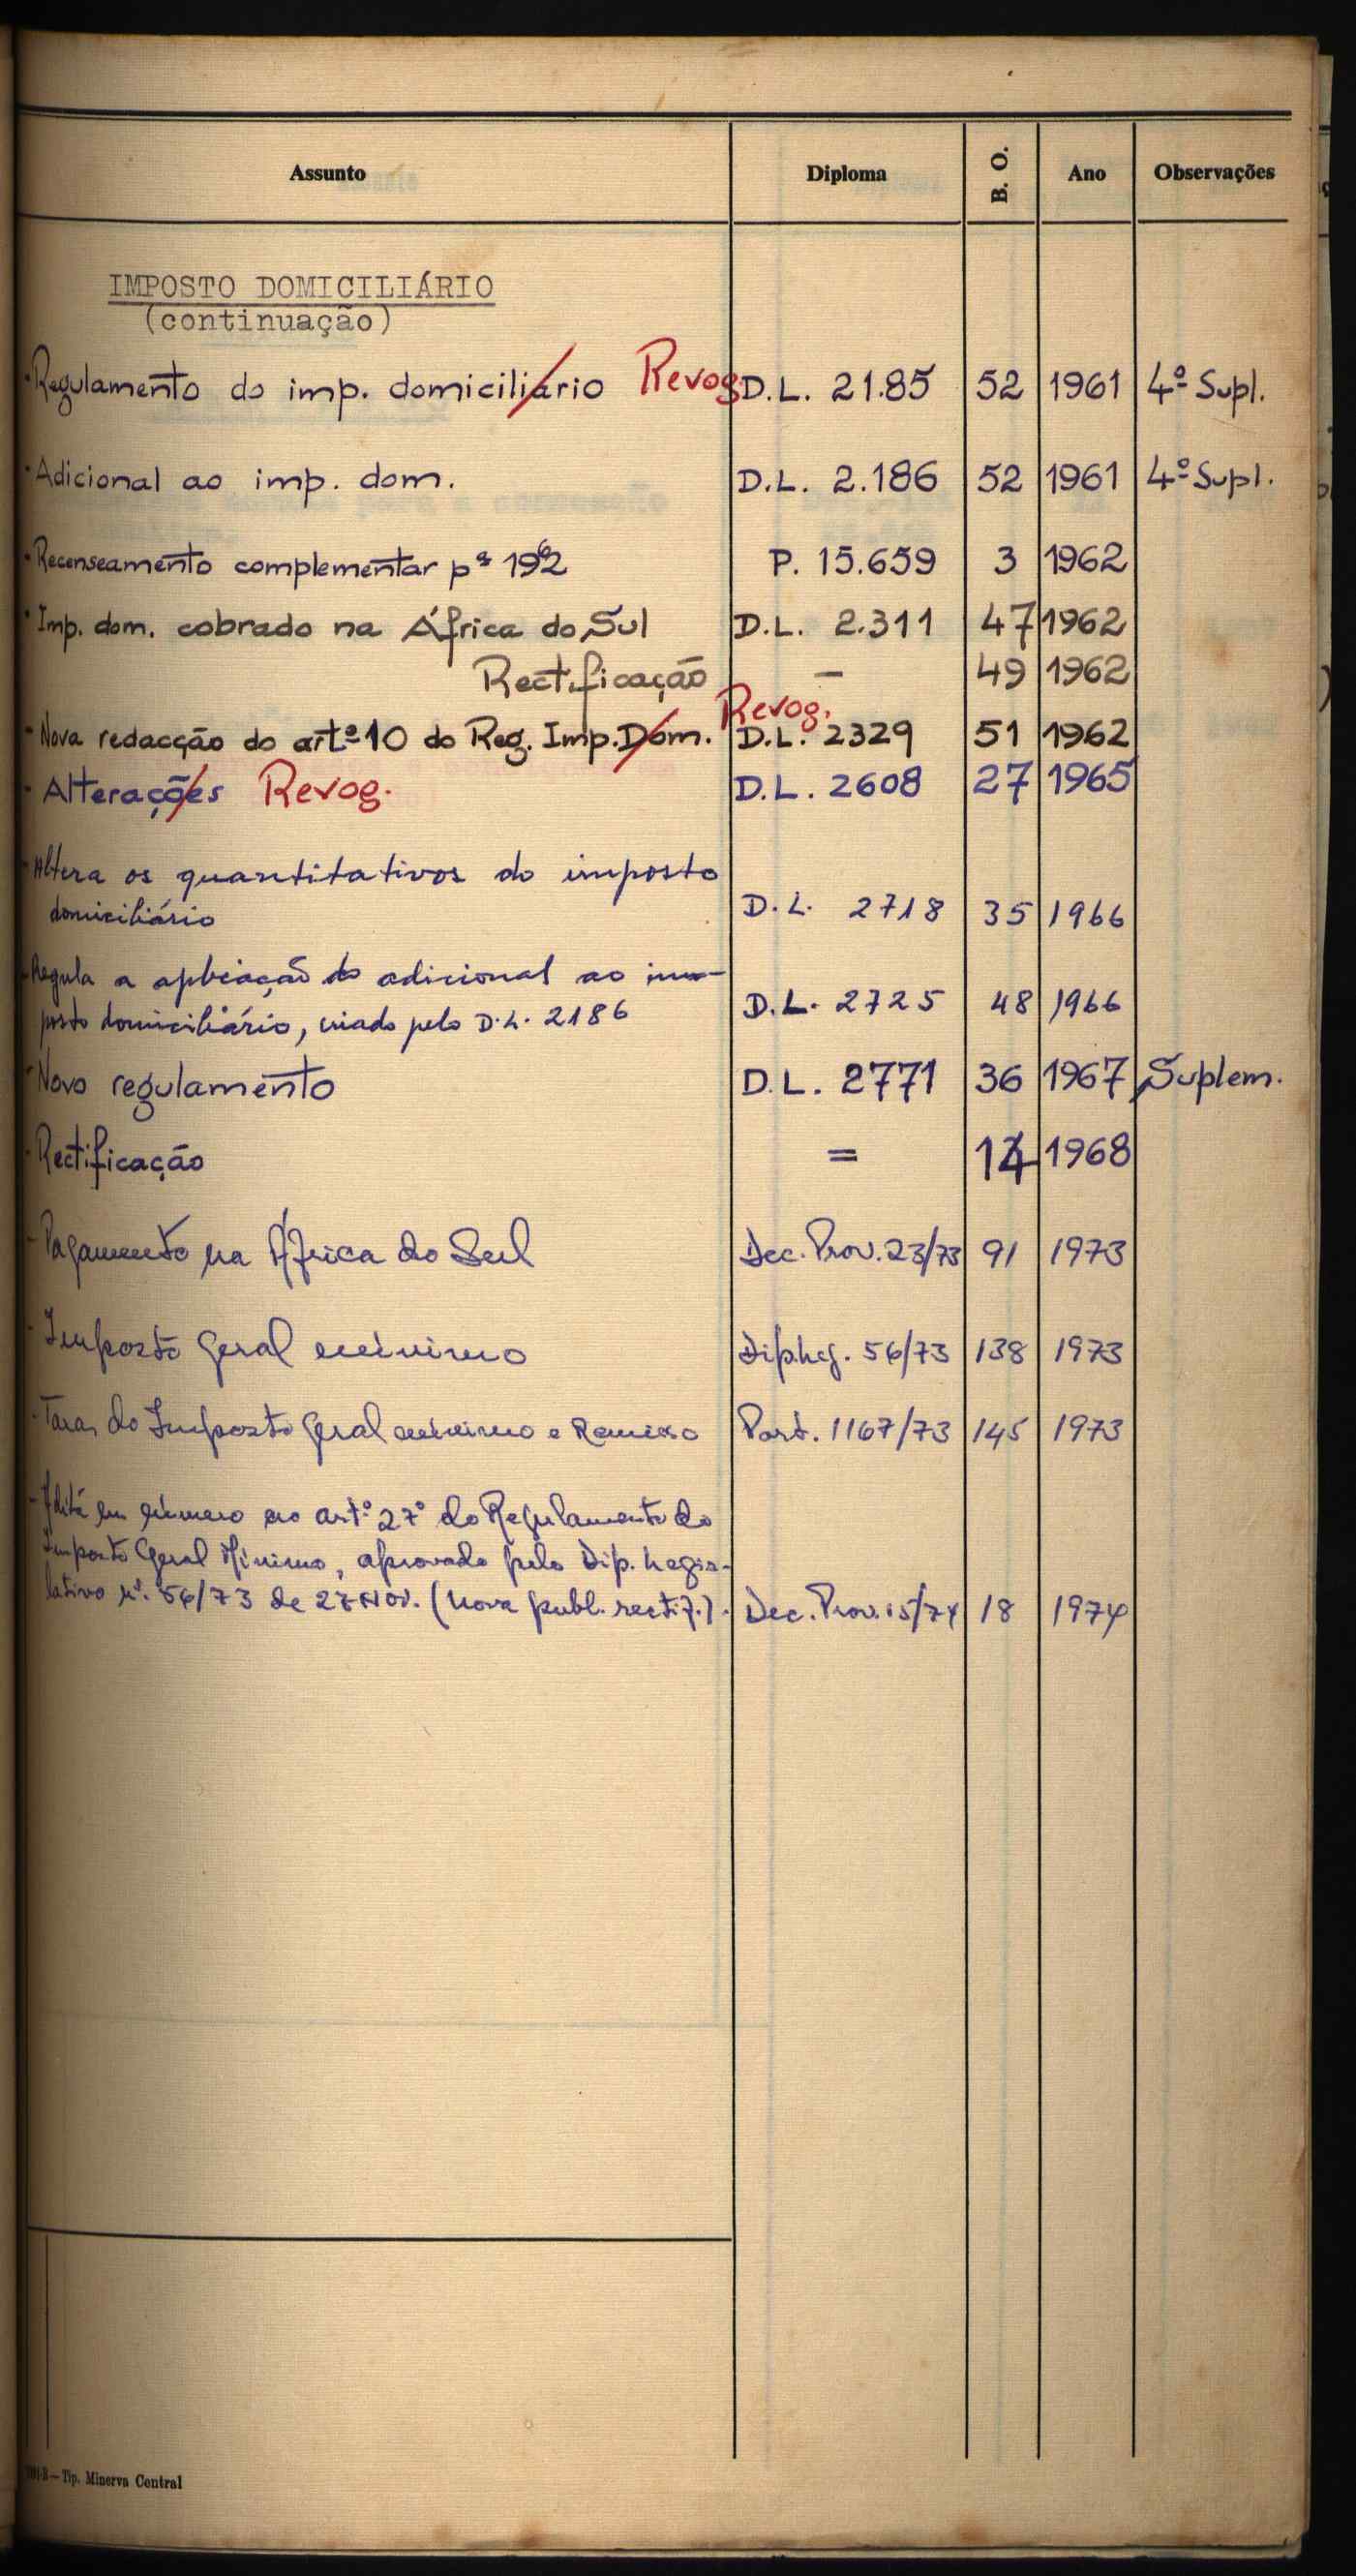 Assunto Diploma B. O. Ano Observações
IMPOSTO DOMICILIÁRIO
(continuação)
Regulamento do imp. domiciliário Revog. D.L. 21.85 52 1961 4º Supl.
Adicional ao imp. dom. D.L. 2.186 52 1961 4º Supl.
Recenseamento complementar pª 1962 P. 15.659 3 1962
Imp. dom. cobrado na África do Sul D.L. 2.311 47 1962
Rectificação — 49 1962
Revog.
Nova redacção do artº 10 do Reg. Imp. Dom. D.L. 2329 51 1962
Alterações Revog. D.L. 2608 27 1965
Altera os quantitativos do imposto
domiciliário D.L. 2718 35 1966
Regula a aplicação do adicional ao im-
posto domiciliário, criado pelo D.L. 2186 D.L. 2725 48 1966
Novo regulamento D.L. 2771 36 1967 Suplem.
Rectificação = 14 1968
Pagamento na África do Sul Dec. Prov. 23/73 91 1973
Imposto Geral mínimo Dip. Leg. 56/73 138 1973
Taxas do Imposto Geral mínimo e Port. 1167/73 145 1973
número ao artº 27º do Regulamento do
Imposto Geral Mínimo, aprovado pelo Dip. Legis-
lativo nº. 56/73 de 27 NOV. (nova publ. rectif.). Dec. Prov. 15/74 18 1974
Tip. Minerva Central